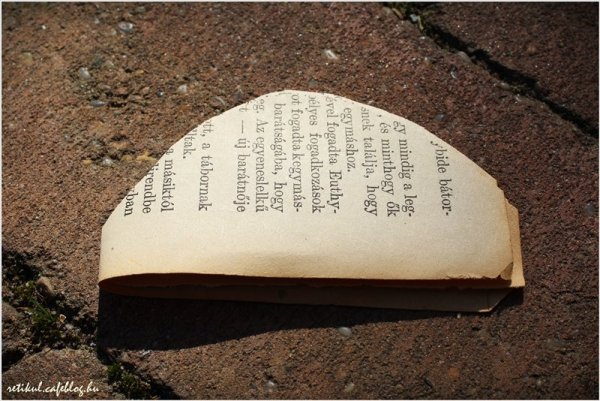 yhide bátor-
gy mindig a leg-
, és minthogy ők
snek találja, hogy
egymáshoz.
ével fogadta Euthy-
élyes fogadkozások
ot fogadta kegymás-
barátságába, hogy
eg. Az egyeneslelkű
t — új barátnője
tt, a tábornak
ltak.
másiktól
rendbe
ban
retikul.cafeblog.hu